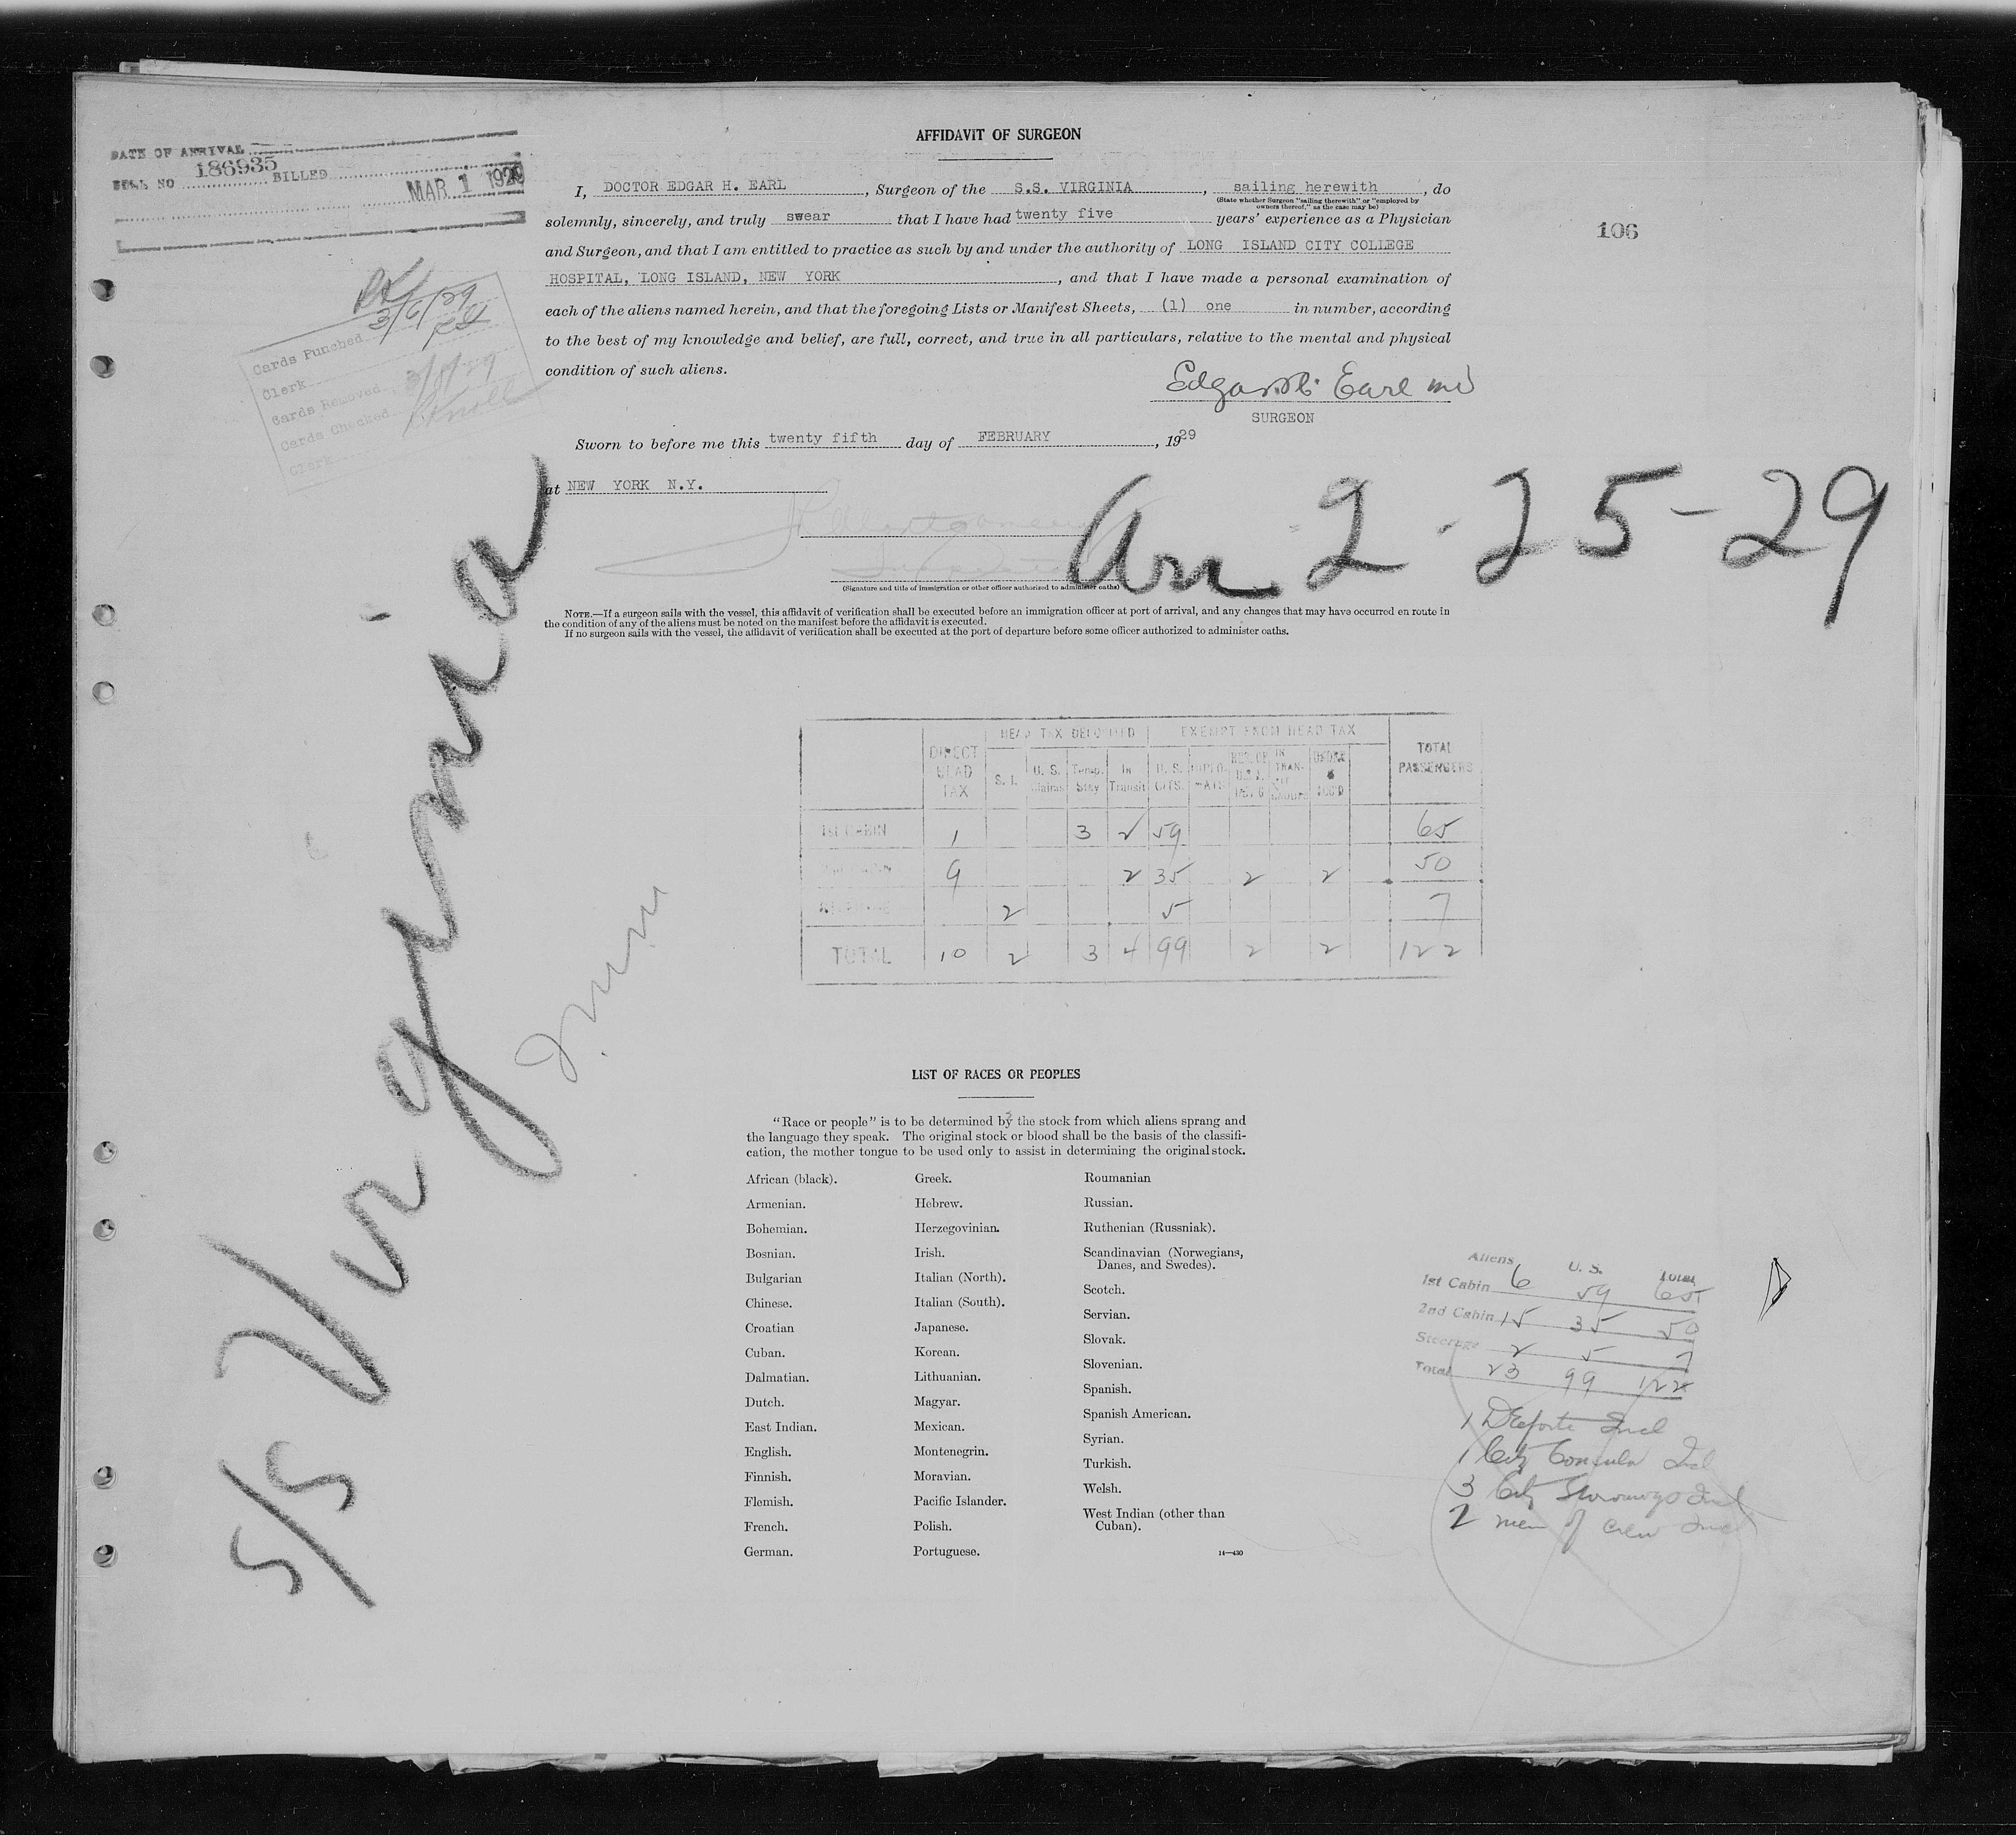 AFFIDAVIT OF SURGEON
DATE OF ARRIVAL
BILL NO 186935 BILLED MAR 1 1929
I, DOCTOR EDGAR H. EARL, Surgeon of the S.S. VIRGINIA, sailing herewith, do
(State whether Surgeon "sailing therewith" or "employed by
owners thereof," as the case may be)
solemnly, sincerely, and truly swear that I have had twenty five years' experience as a Physician
106
and Surgeon, and that I am entitled to practice as such by and under the authority of LONG ISLAND CITY COLLEGE
HOSPITAL, LONG ISLAND, NEW YORK, and that I have made a personal examination of
each of the aliens named herein, and that the foregoing Lists or Manifest Sheets, (1) one in number, according
to the best of my knowledge and belief, are full, correct, and true in all particulars, relative to the mental and physical
condition of such aliens.
Edgar H. Earl MD
SURGEON
Sworn to before me this twenty fifth day of FEBRUARY, 1929
at NEW YORK N.Y.
Inspector
(Signature and title of immigration or other officer authorized to administer oaths)
3/6/29
Cards Punched
Clerk
Cards Removed
Cards Checked
Clerk
Arr. 2-25-29
S/S Virginia
NOTE.—If a surgeon sails with the vessel, this affidavit of verification shall be executed before an immigration officer at port of arrival, and any changes that may have occurred en route in
the condition of any of the aliens must be noted on the manifest before the affidavit is executed.
If no surgeon sails with the vessel, the affidavit of verification shall be executed at the port of departure before some officer authorized to administer oaths.
HEAD TAX DEPOSITED EXEMPT FROM HEAD TAX
DIRECT HEAD TAX S. I. U. S. Temp. Stay In Transit U. S. CITS. IN TRAN- TOTAL PASSENGERS
1st CABIN 1 3 2 59 65
9 2 35 2 2 50
2 5 7
TOTAL 10 2 3 4 99 2 2 122
LIST OF RACES OR PEOPLES
"Race or people" is to be determined by the stock from which aliens sprang and
the language they speak. The original stock or blood shall be the basis of the classifi-
cation, the mother tongue to be used only to assist in determining the original stock.
African (black).
Armenian.
Bohemian.
Bosnian.
Bulgarian
Chinese.
Croatian
Cuban.
Dalmatian.
Dutch.
East Indian.
English.
Finnish.
Flemish.
French.
German.
Greek.
Hebrew.
Herzegovinian.
Irish.
Italian (North).
Italian (South).
Japanese.
Korean.
Lithuanian.
Magyar.
Mexican.
Montenegrin.
Moravian.
Pacific Islander.
Polish.
Portuguese.
Roumanian
Russian.
Ruthenian (Russniak).
Scandinavian (Norwegians,
Danes, and Swedes).
Scotch.
Servian.
Slovak.
Slovenian.
Spanish.
Spanish American.
Syrian.
Turkish.
Welsh.
West Indian (other than
Cuban).
14—430
Aliens U. S. Total
1st Cabin 6 59 65
2nd Cabin 15 35 50
Steerage 2 5 7
Total 23 99 122
1 Deporte Incl
1 City Consular Incl
3 City Incl
2 men of crew Incl